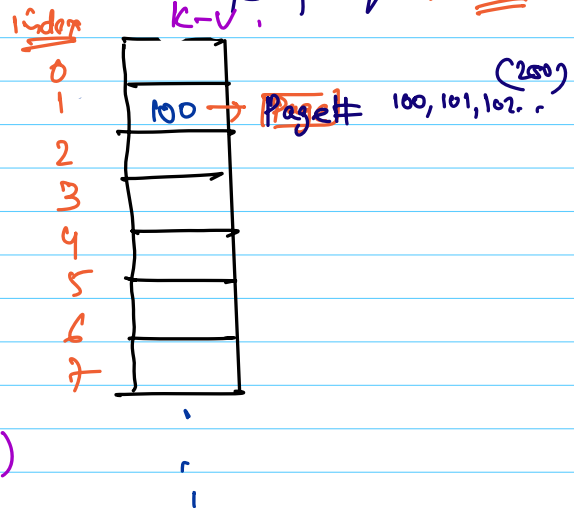 index K-V.
0
(200)
1 100 → Page# 100, 101, 102..
2
3
4
5
6
7
)